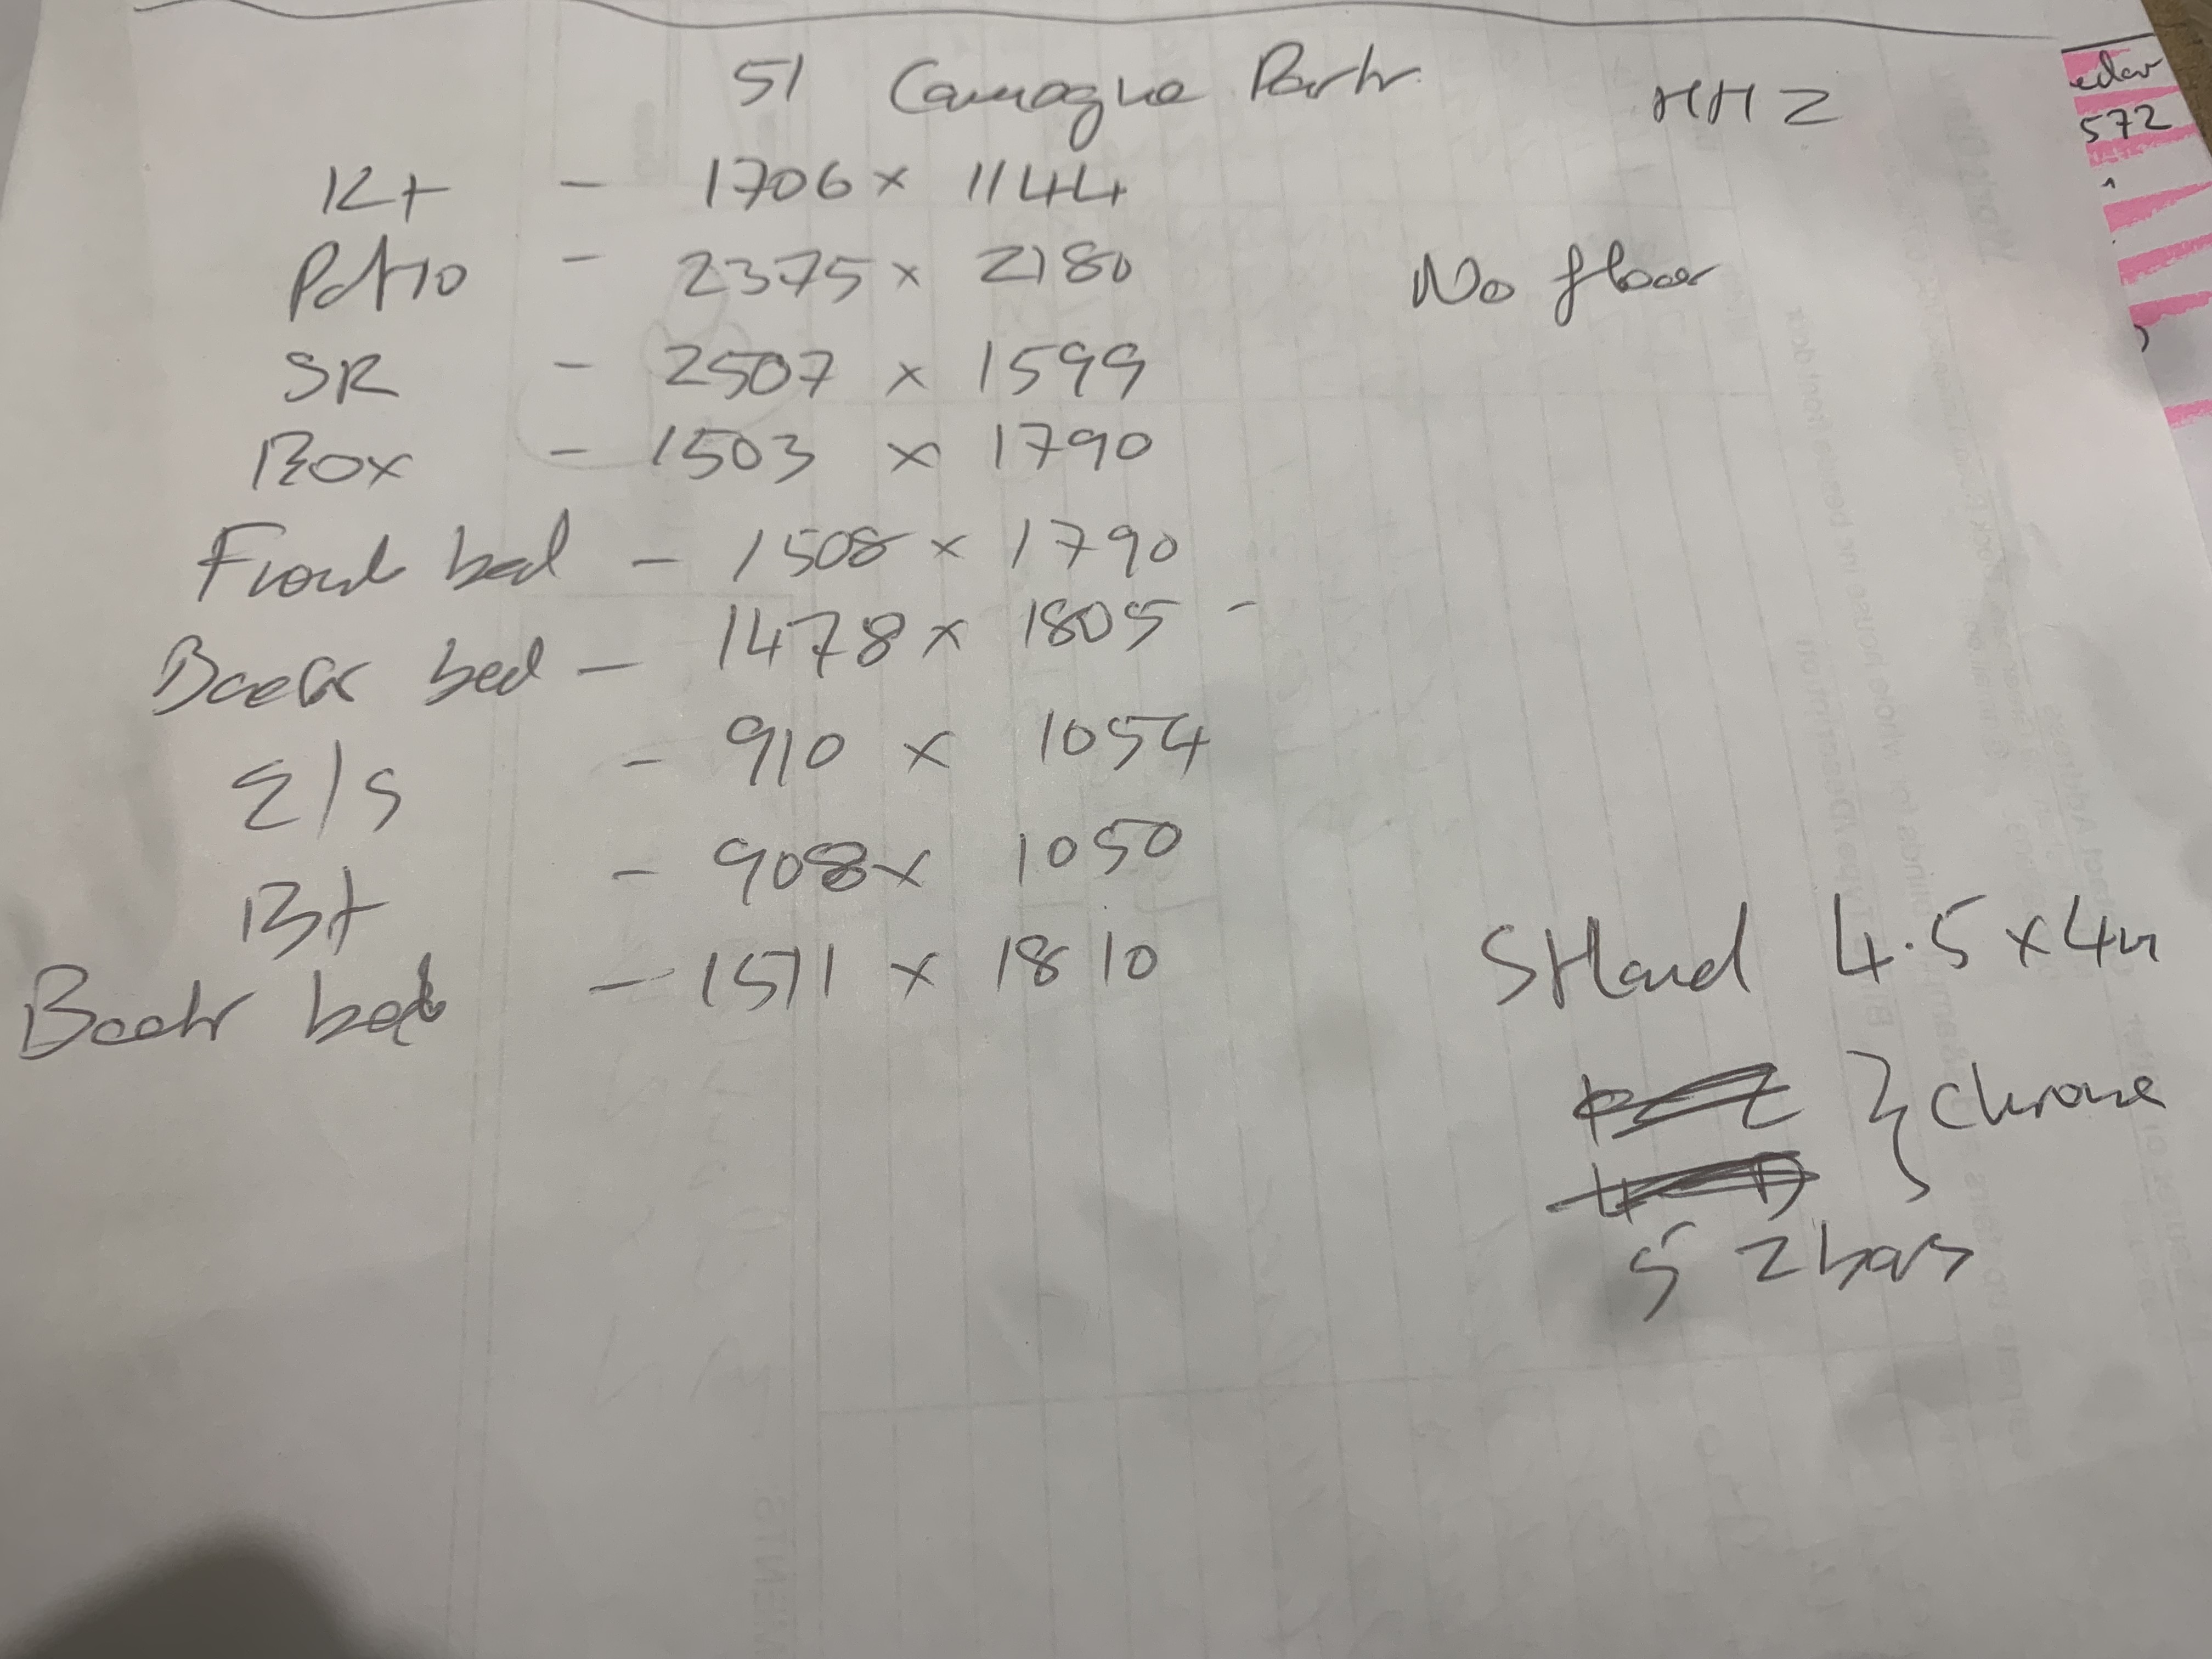 51 Camogue Park HHZ
Kt - 1706 x 1144
Patio - 2375 x 2180 No floor
SR - 2507 x 1599
Box - 1503 x 1790
Front bed - 1508 x 1790
Back bed - 1478 x 1805 -
E/S - 910 x 1054
Bt - 908 x 1050
Back bed - 1511 x 1810
Stand 4.5 x 4m
} chrome
5 2 bars
572